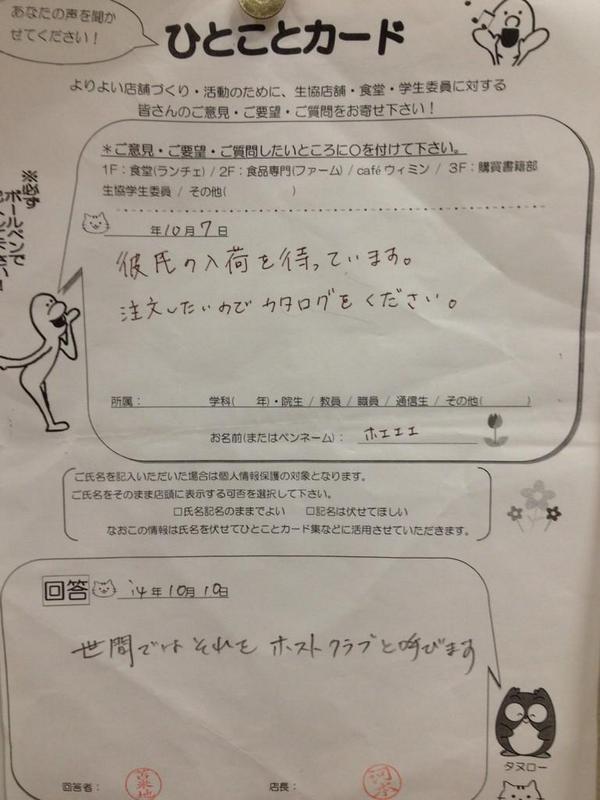 あなたの声を聞か
せてください！
ひとことカード
よりよい店舗づくり・活動のために、生協店舗・食堂・学生委員に対する
皆さんのご意見・ご要望・ご質問をお寄せ下さい！
＊ご意見・ご要望・ご質問したいところに○を付けて下さい。
1F：食堂(ランチェ) / 2F：食品専門(ファーム) / café ウィミン / 3F：購買書籍部
生協学生委員 / その他(　　　)
※必ず
ボールペンで
年10月7日
彼氏の入荷を待っています。
注文したいのでカタログをください。
所属：　　　学科(　年)・院生 / 教員 / 職員 / 通信生 / その他(　　　)
お名前(またはペンネーム)： ホエエエ
ご氏名を記入いただいた場合は個人情報保護の対象となります。
ご氏名をそのまま店頭に表示する可否を選択して下さい。
□氏名記名のままでよい　□記名は伏せてほしい
なおこの情報は氏名を伏せてひとことカード集などに活用させていただきます。
回答 '14年10月10日
世間ではそれをホストクラブと呼びます
タヌロー
回答者：　　店長：